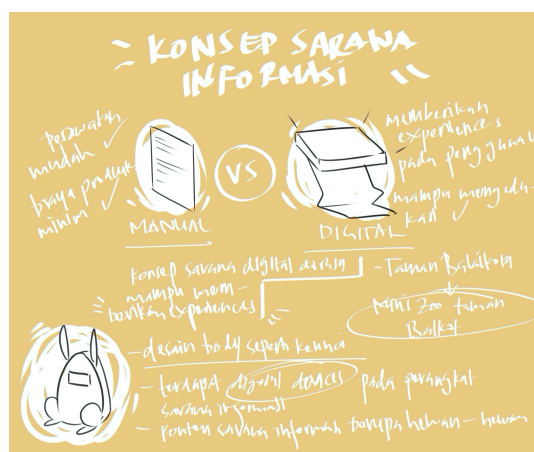 KONSEP SARANA
INFORMASI
perawatan
mudah
biaya produk
minim
MANUAL
VS
DIGITAL
memberikan
experiences
pada pengguna
mampu mengedu-
kasi
konsep sarana digital
mampu mem-
berikan experiences
- Taman Balaikota
Mini Zoo taman
Balkot
- desain body seperti kelinci
- terdapat digital devices pada perangkat
sarana informasi
- konten sarana informasi berupa hewan-hewan